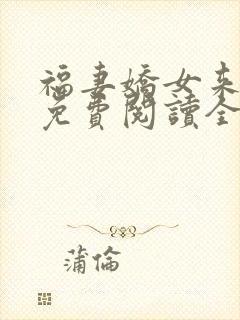 福妻嬌女來
免費閱讀全
蒲倫